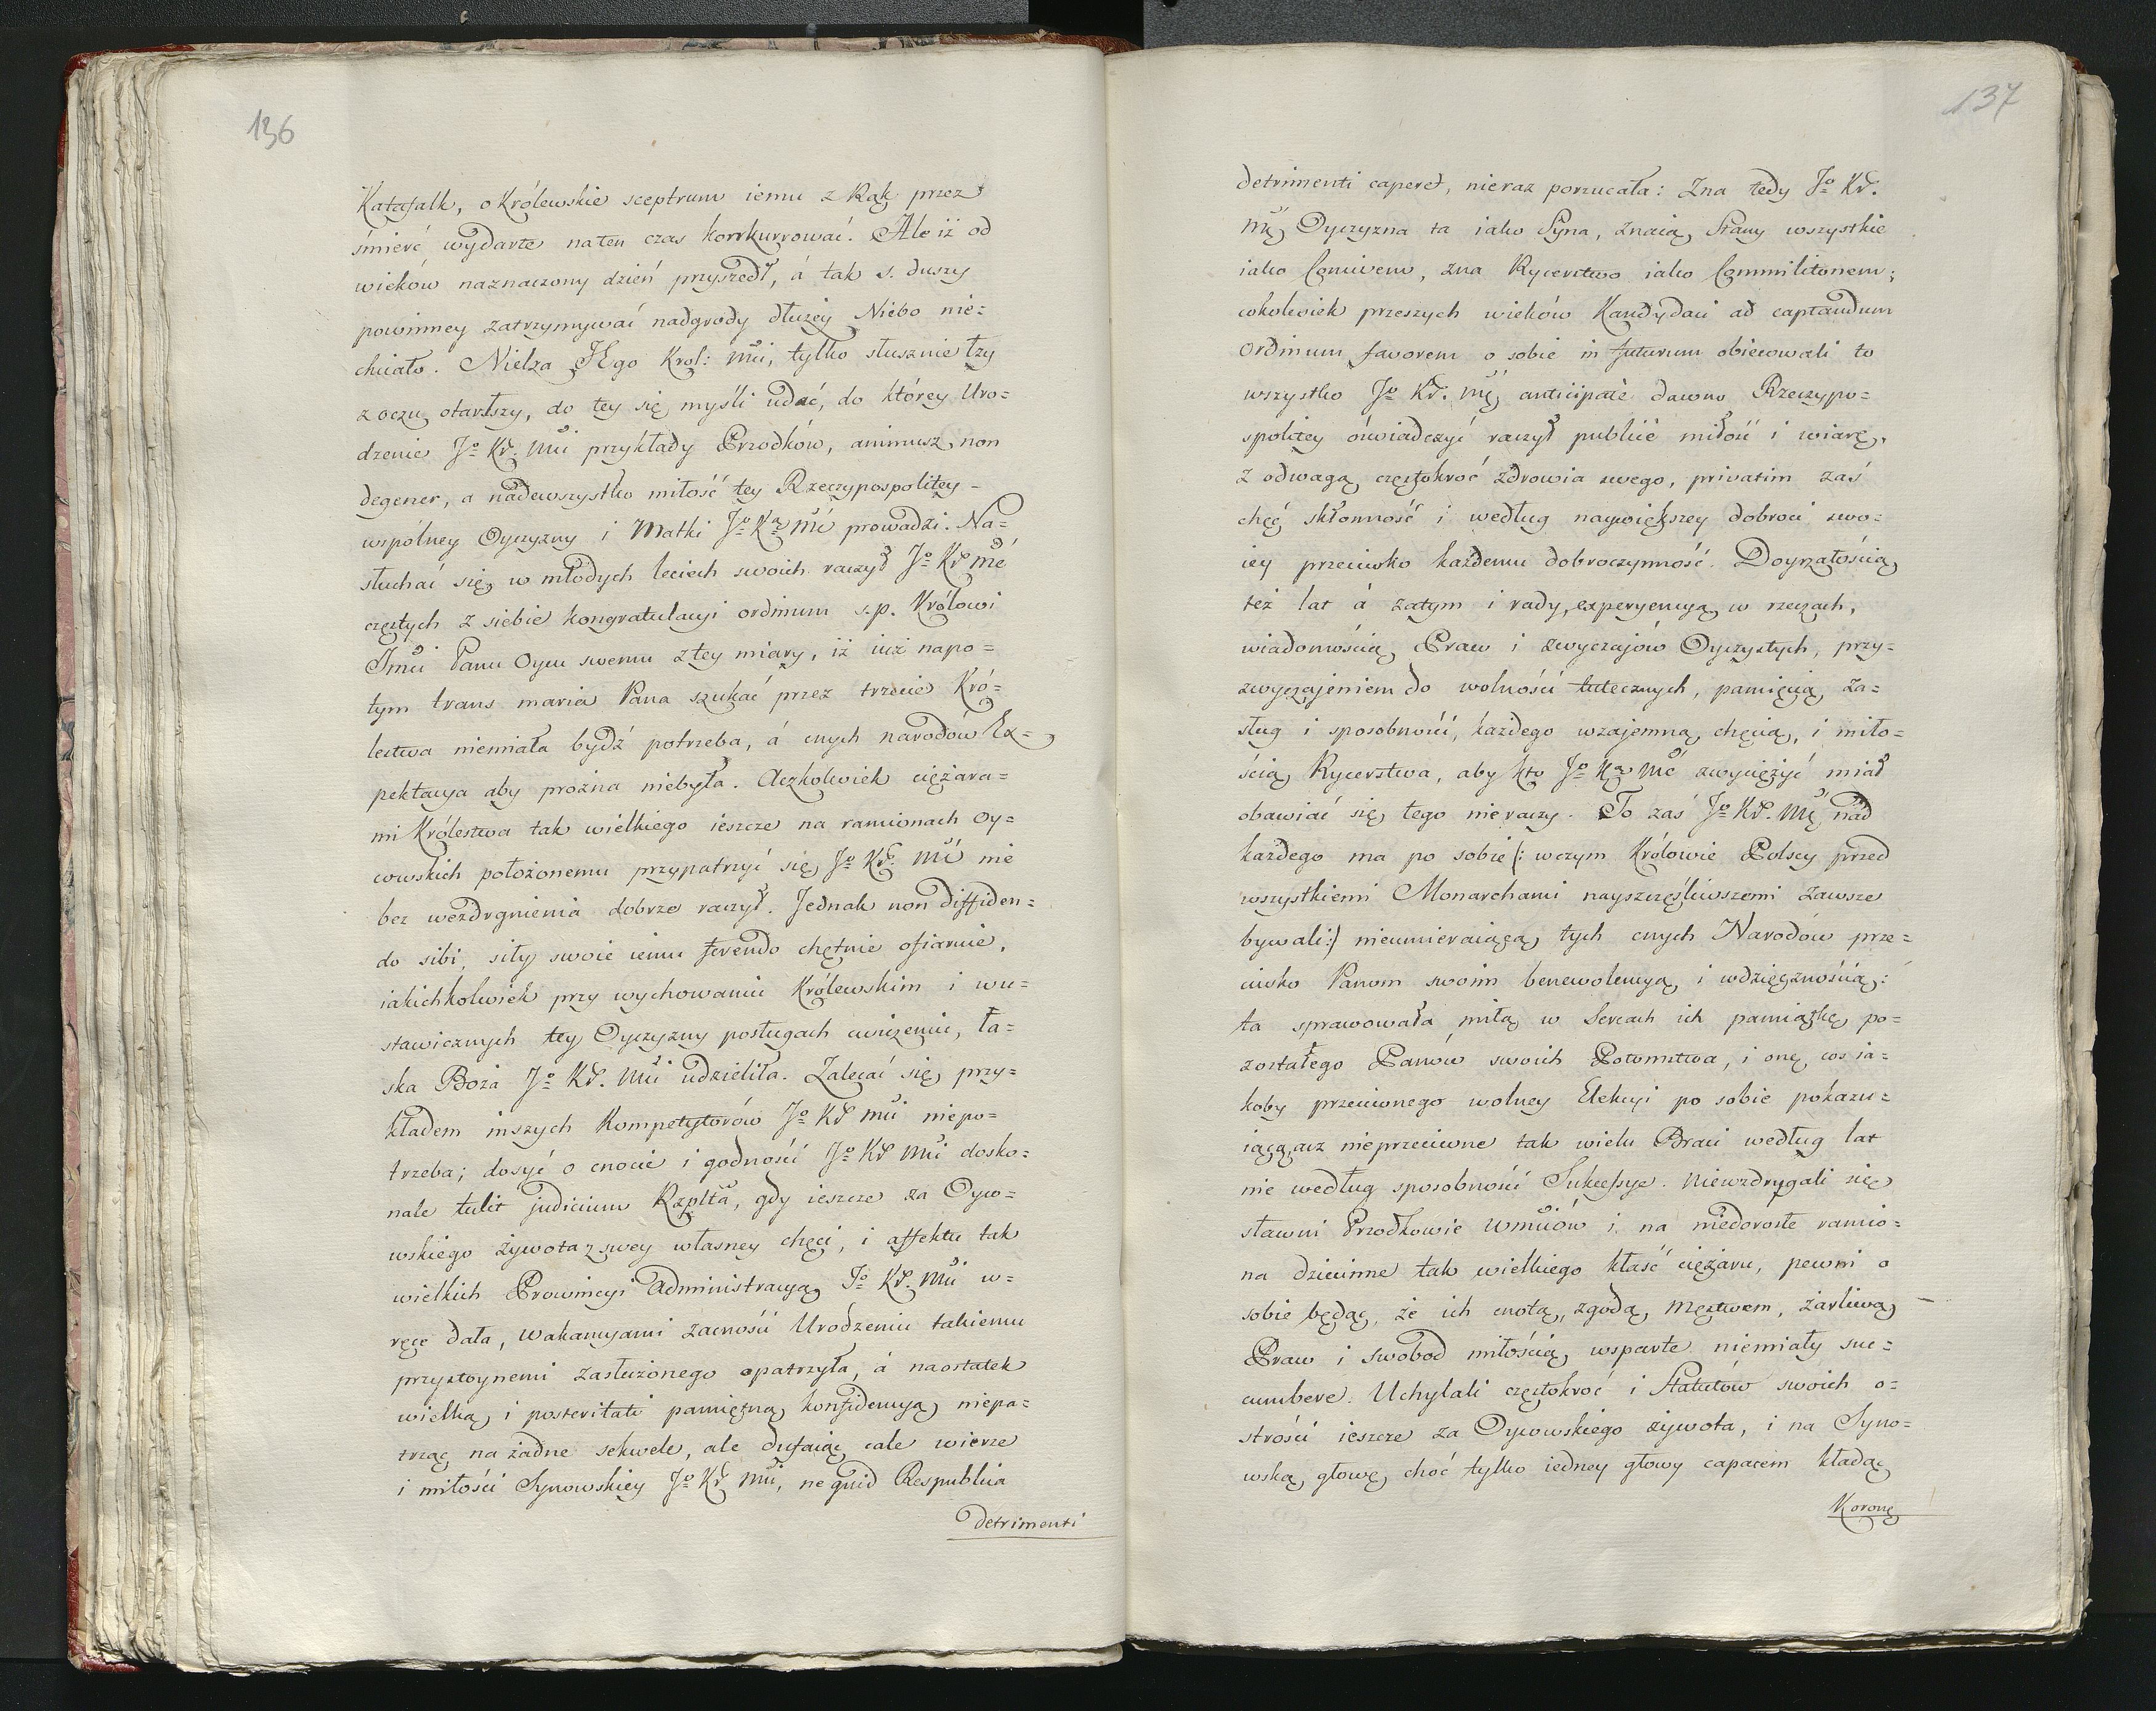 136
Katafalk, o Królewskie sceptrum iemu z Rąk przez
śmierć wydarte na ten czas konkurrować. Ale iż od
wieków naznaczony dzień przyszedł, á tak s. duszy
powinney zatrzymywać nadgrody dłużey Niebo nie=
chciało. Nielza JEgo Krol: Mći, tylko słusznie łzy
z oczu otartszy, do tey się myśli udać, do którey Uro=
dzenie Jo Kr. Mći przykłady Przodków, animusz non
degener, a nadewszystko miłość tey Rzeczypospolitey
wspólney Oyczyzny i Matki Jo Ka Mć prowadzi. Na=
słuchać się w młodych leciech swoich raczył Jo Kr Mć
częstych z siebie kongratulacyi ordinum s.p. Królowi
Jmći Panu Oycu swemu z tey miary, iż iuż napo=
tym trans maria Pana szukać przez trzecie Kró=
lestwa niemiała bydź potrzeba, á cnych narodów Ex=
pektacya aby prożna niebyła. Aczkolwiek ciężara=
mi Królestwa tak wielkiego ieszcze na ramionach Oy=
cowskich położonemu przypatrzyć się Jo Kr: Mć nie
bez wezdrgnienia dobrze raczył. Jednak non diffiden=
do sibi, siły swoie iemu ferendo chętnie ofiaruie,
iakichkolwiek przy wychowaniu Królewskim i wu=
stawicznych tey Oyczyzny posługach cwiczeniu, ła=
ska Boża Jo Kr. Mći udzieliła. Zalecać się przy=
kładem inszych Kompetytorów Jo Kr Mći niepo=
trzeba; dosyć o cnocie i godności Jo Kr Mći dosko=
nale tulit judicium Rzplta, gdy ieszcze za Oyco=
wskiego żywota z swey własney chęci, i affektu tak
wielkich Prowincyi Administracyą Jo Kr. Mći w=
ręce dała, wakancyami zacności Urodzeniu takiemu
przystoynemi zasłużonego opatrzyła, á naostatek
wielką i posteritati pamiętną konfidencyą, niepa=
trząc na żadne sekwele, ale dufaiąc cale wierze
i miłości Synowskiey Jo Kr Mći, ne quid Respublica
Detrimenti
137
detrimenti caperet, nieraz porzucała: Zna tedy Jo Kr.
Mć Oyczyzna ta iako Syna, znaią Stany wszystkie
iako Comivem, zna Rycerstwo iako Commilitonem;
cokolwiek przeszych wieków Kandydaci ad captandum
Ordinum favorem o sobie in futurum obiecowali to
wszystko Jo Kr. Mć anticipatè dawno Rzeczypo=
spolitey óświadczyć raczył publicè miłość i wiarę,
z odwagą częstokroć zdrowia swego, privatim zaś
chęć skłonność i według naywiększey dobroci swo=
iey przeciwko każdemu dobroczynność. Doyrzałością
też lat á zatym i rady, experyencyą w rzeczach,
wiadomością Praw i zwyczajów Oyczystych, przy=
zwyczajeniem do wolności tutecznych, pamięcią za=
sług i sposobności, każdego wzajemną chęcią, i miło=
ścią Rycerstwa, aby kto Jo Ka Mć zwyciężyć miał
obawiać się tego nieraczy. To zaś Jo Kr. Mć nad
każdego ma po sobie (: wczym Królowie Polscy przed
wszystkiemi Monarchami nayszczęśliwszemi zawsze
bywali:) nieumieraiącą tych cnych Narodów prze=
ciwko Panom swoim benewolencyą i wdzięcznością:
ta sprawowała miłą w Sercach ich pamiątkę po=
zostałego Panów swoich Potomstwa, i onę cos ia=
koby przeciwnego wolney Elekcyi po sobie pokazu=
iącą, acz nieprzeciwne tak wielu Braci według lat
nie według sposobności Sukcessye. Niewzdrygali się
sławni Przodkowie WMciów i na niedorosłe ramio=
na dziecinne tak wielkiego kłaść ciężaru, pewni o
sobie będąc, że ich cnotą, zgodą, męstwem, żarliwą
Praw i swobod miłością wsparte niemiały suc=
cumbere. Uchylali częstokroć i Statutów swoich o=
strości ieszcze za Oycowskiego żywota, i na Syno=
wską głowę, choć tylko iedney głowy capacem kładąc
Koronę